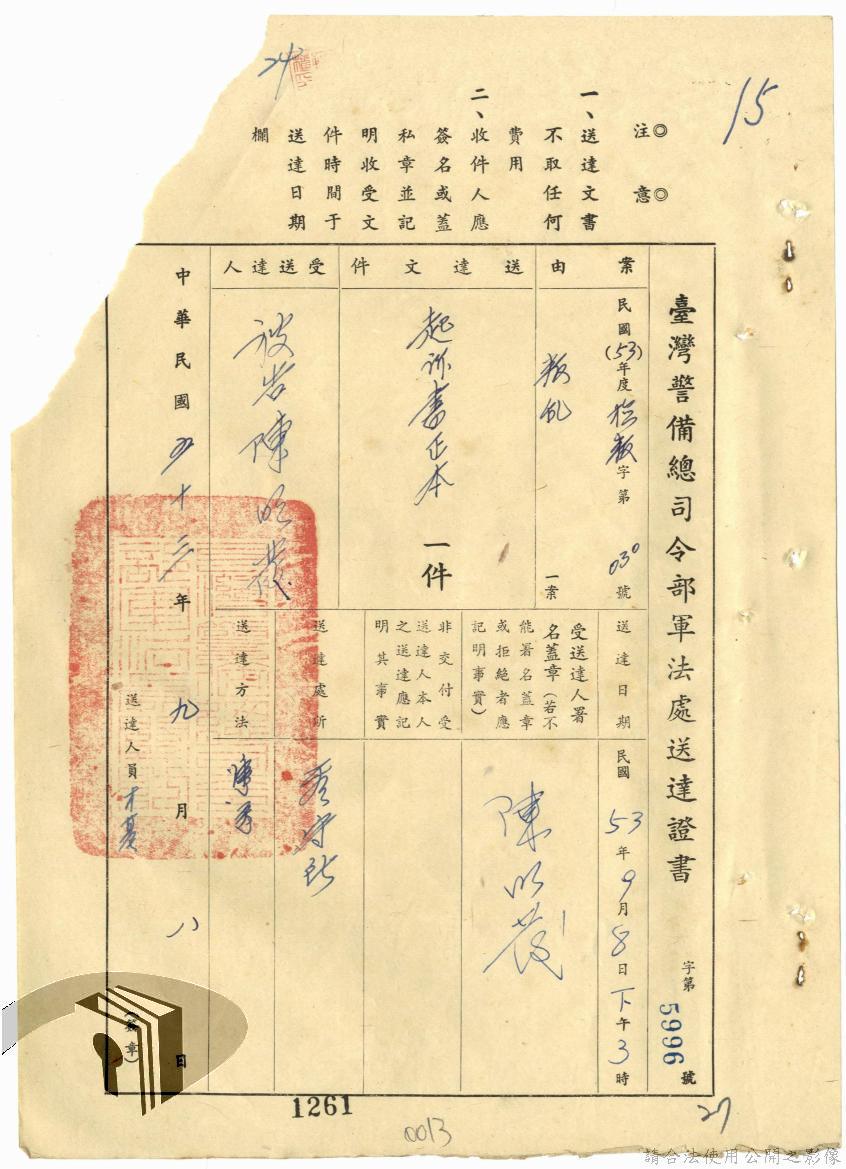 15
24
◎注意◎
一、送達文書
不取任何
費用
二、收件人應
簽名或蓋
私章並記
明收受文
件時間于
送達日期
欄
臺灣警備總司令部軍法處送達證書
字第5996號
案由
民國(53)年度檢叛字第030號
叛乱
一案
送達文件
起訴書正本
一件
受送達人
被告陳明發
送達日期
民國53年9月8日下午3時
受送達人署
名蓋章(若不
能署名蓋章
或拒絕者應
記明事實)
陳明發
非交付受
送達人本人
之送達應記
明其事實
送達處所
看守所
送達方法
中華民國五十三年九月八日
送達人員
(簽章)
1261
0013
27
請合法使用公開之影像